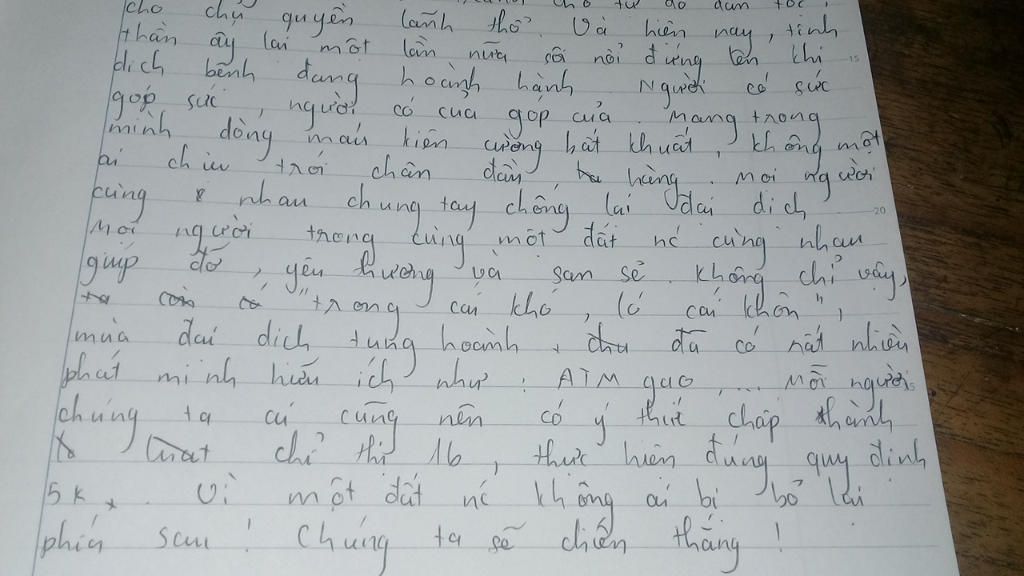 cho tự do dân tộc,
cho chủ quyền lãnh thổ. Và hiện nay, tinh
thần ấy lại một lần nữa sôi nổi đứng lên khi
dịch bệnh đang hoành hành. Người có sức
góp sức, người có của góp của. Mang trong
mình dòng máu kiên cường bất khuất, không một
ai chịu trói chân đầu hàng. Mọi người
cùng nhau chung tay chống lại đại dịch
Mọi người trong cùng một đất nc cùng nhau
giúp đỡ, yêu thương và san sẻ. Không chỉ vậy,
"trong cái khó, ló cái khôn",
mùa đại dịch tung hoành, đã có rất nhiều
phát minh hữu ích như: ATM gạo,... Mỗi người
chúng ta cũng nên có ý thức chấp thành
chỉ thị 16, thực hiện đúng quy định
5k. Vì một đất nc không ai bị bỏ lại
phía sau! Chúng ta sẽ chiến thắng!